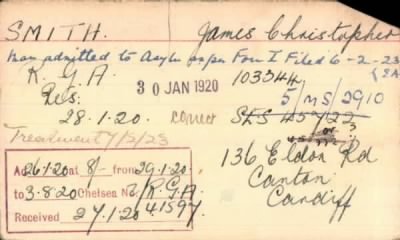 SMITH. James Christopher
Man admitted to Asylm Form I Filed 6-2-23
R.G.A. 30 JAN 1920 103344
Res. 5/MS/2910
28.1.20. correct SES 45722
or
Treatment 7/2/23
Ad 26.1.20 at 8/- from 29.1.20.
to 3.8.20 Chelsea No/R.G.A.
Received 27.1.20 41597
136 Eldon Rd
Canton
Cardiff